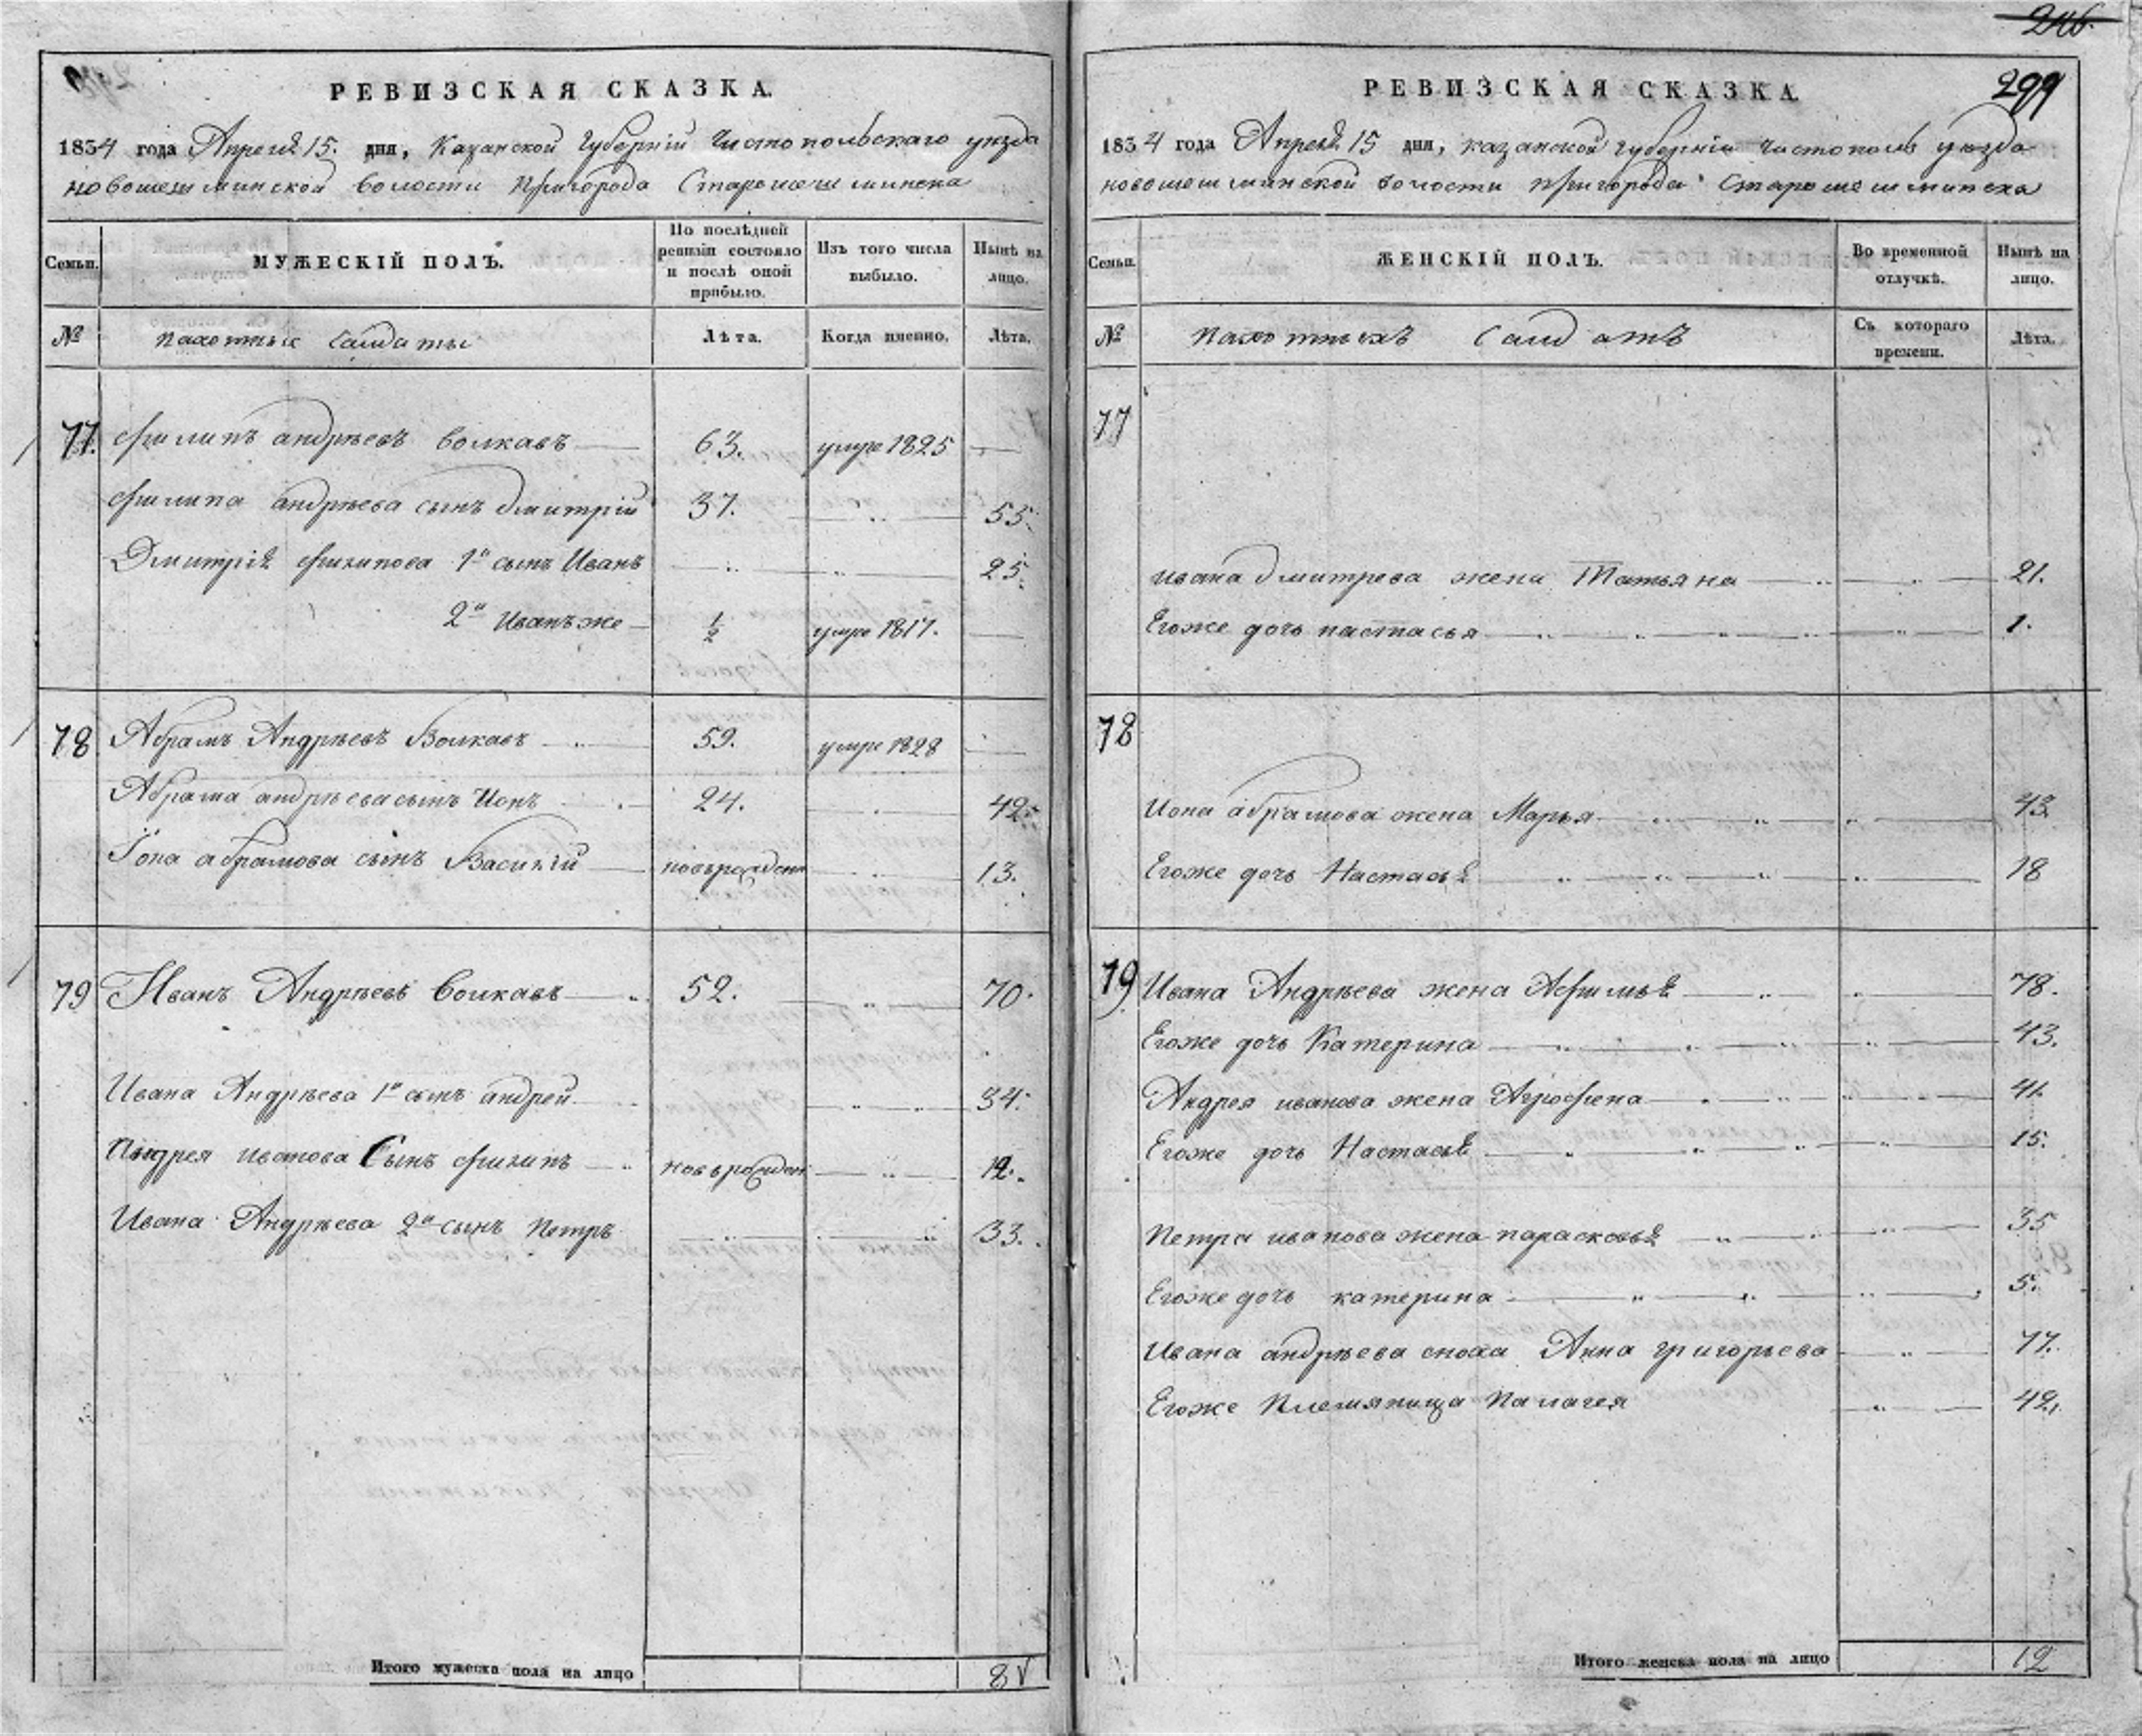 246.
РЕВИЗСКАЯ СКАЗКА.
1834 года Апреля 15. дня, Казанской Губерніи Чистопольскаго уезда
новошешминской волости Пригорода Старошешминска
Семьи. МУЖЕСКІЙ ПОЛЪ. По послѣдней ревизіи состояло и послѣ оной прибыло. Изъ того числа выбыло. Нынѣ на лицо.
№ пахотныя Салдаты Лѣта. Когда имянно. Лѣта.
77. филипъ андрѣевъ волкавъ 63. умре 1825
филипа андрѣева сынъ дмитрій 37. 55.
Дмитрія филипова 1й сынъ Иванъ 25.
2й Иванъ же 1/2 умре 1817.
78 Абрамъ Андрѣевъ Волкавъ 59. умре 1828
Абрама андрѣева сынъ Ионъ 24. 42.
Їона абрамова сынъ Василій новърожден 13.
79 Иванъ Андрѣевъ Волкавъ 52. 70.
Ивана Андрѣева 1й сынъ андрей 34.
Андрея иванова Сынъ филипъ новърожден 12.
Ивана Андрѣева 2й сынъ петръ 33.
Итого мужеска пола на лицо 8
299
РЕВИЗСКАЯ СКАЗКА.
1834 года Апреля 15 дня, казанской губерніи чистополь уезда
новошешминской волости пригорода Старошешминска
Семьи. ЖЕНСКІЙ ПОЛЪ. Во временной отлучкѣ. Нынѣ на лицо.
№ Пахотныхъ Салдатъ Съ котораго времени. Лѣта.
77
ивана дмитрева жена Татьяна 21.
Егоже дочь настасья 1.
78
Иона абрамова жена Марья 43
Егоже дочь Настасья 18
79 Ивана Андрѣева жена Афимья 78.
Егоже дочь Катерина 43.
Андрея иванова жена Агрофена 41.
Егоже дочь Настасья 15.
Петра иванова жена парасковья 35
Егоже дочь катерина 5.
Ивана андрѣева сноха Анна григорьева 77.
Егоже Племяница Палагея 42.
Итого женска пола на лицо 12